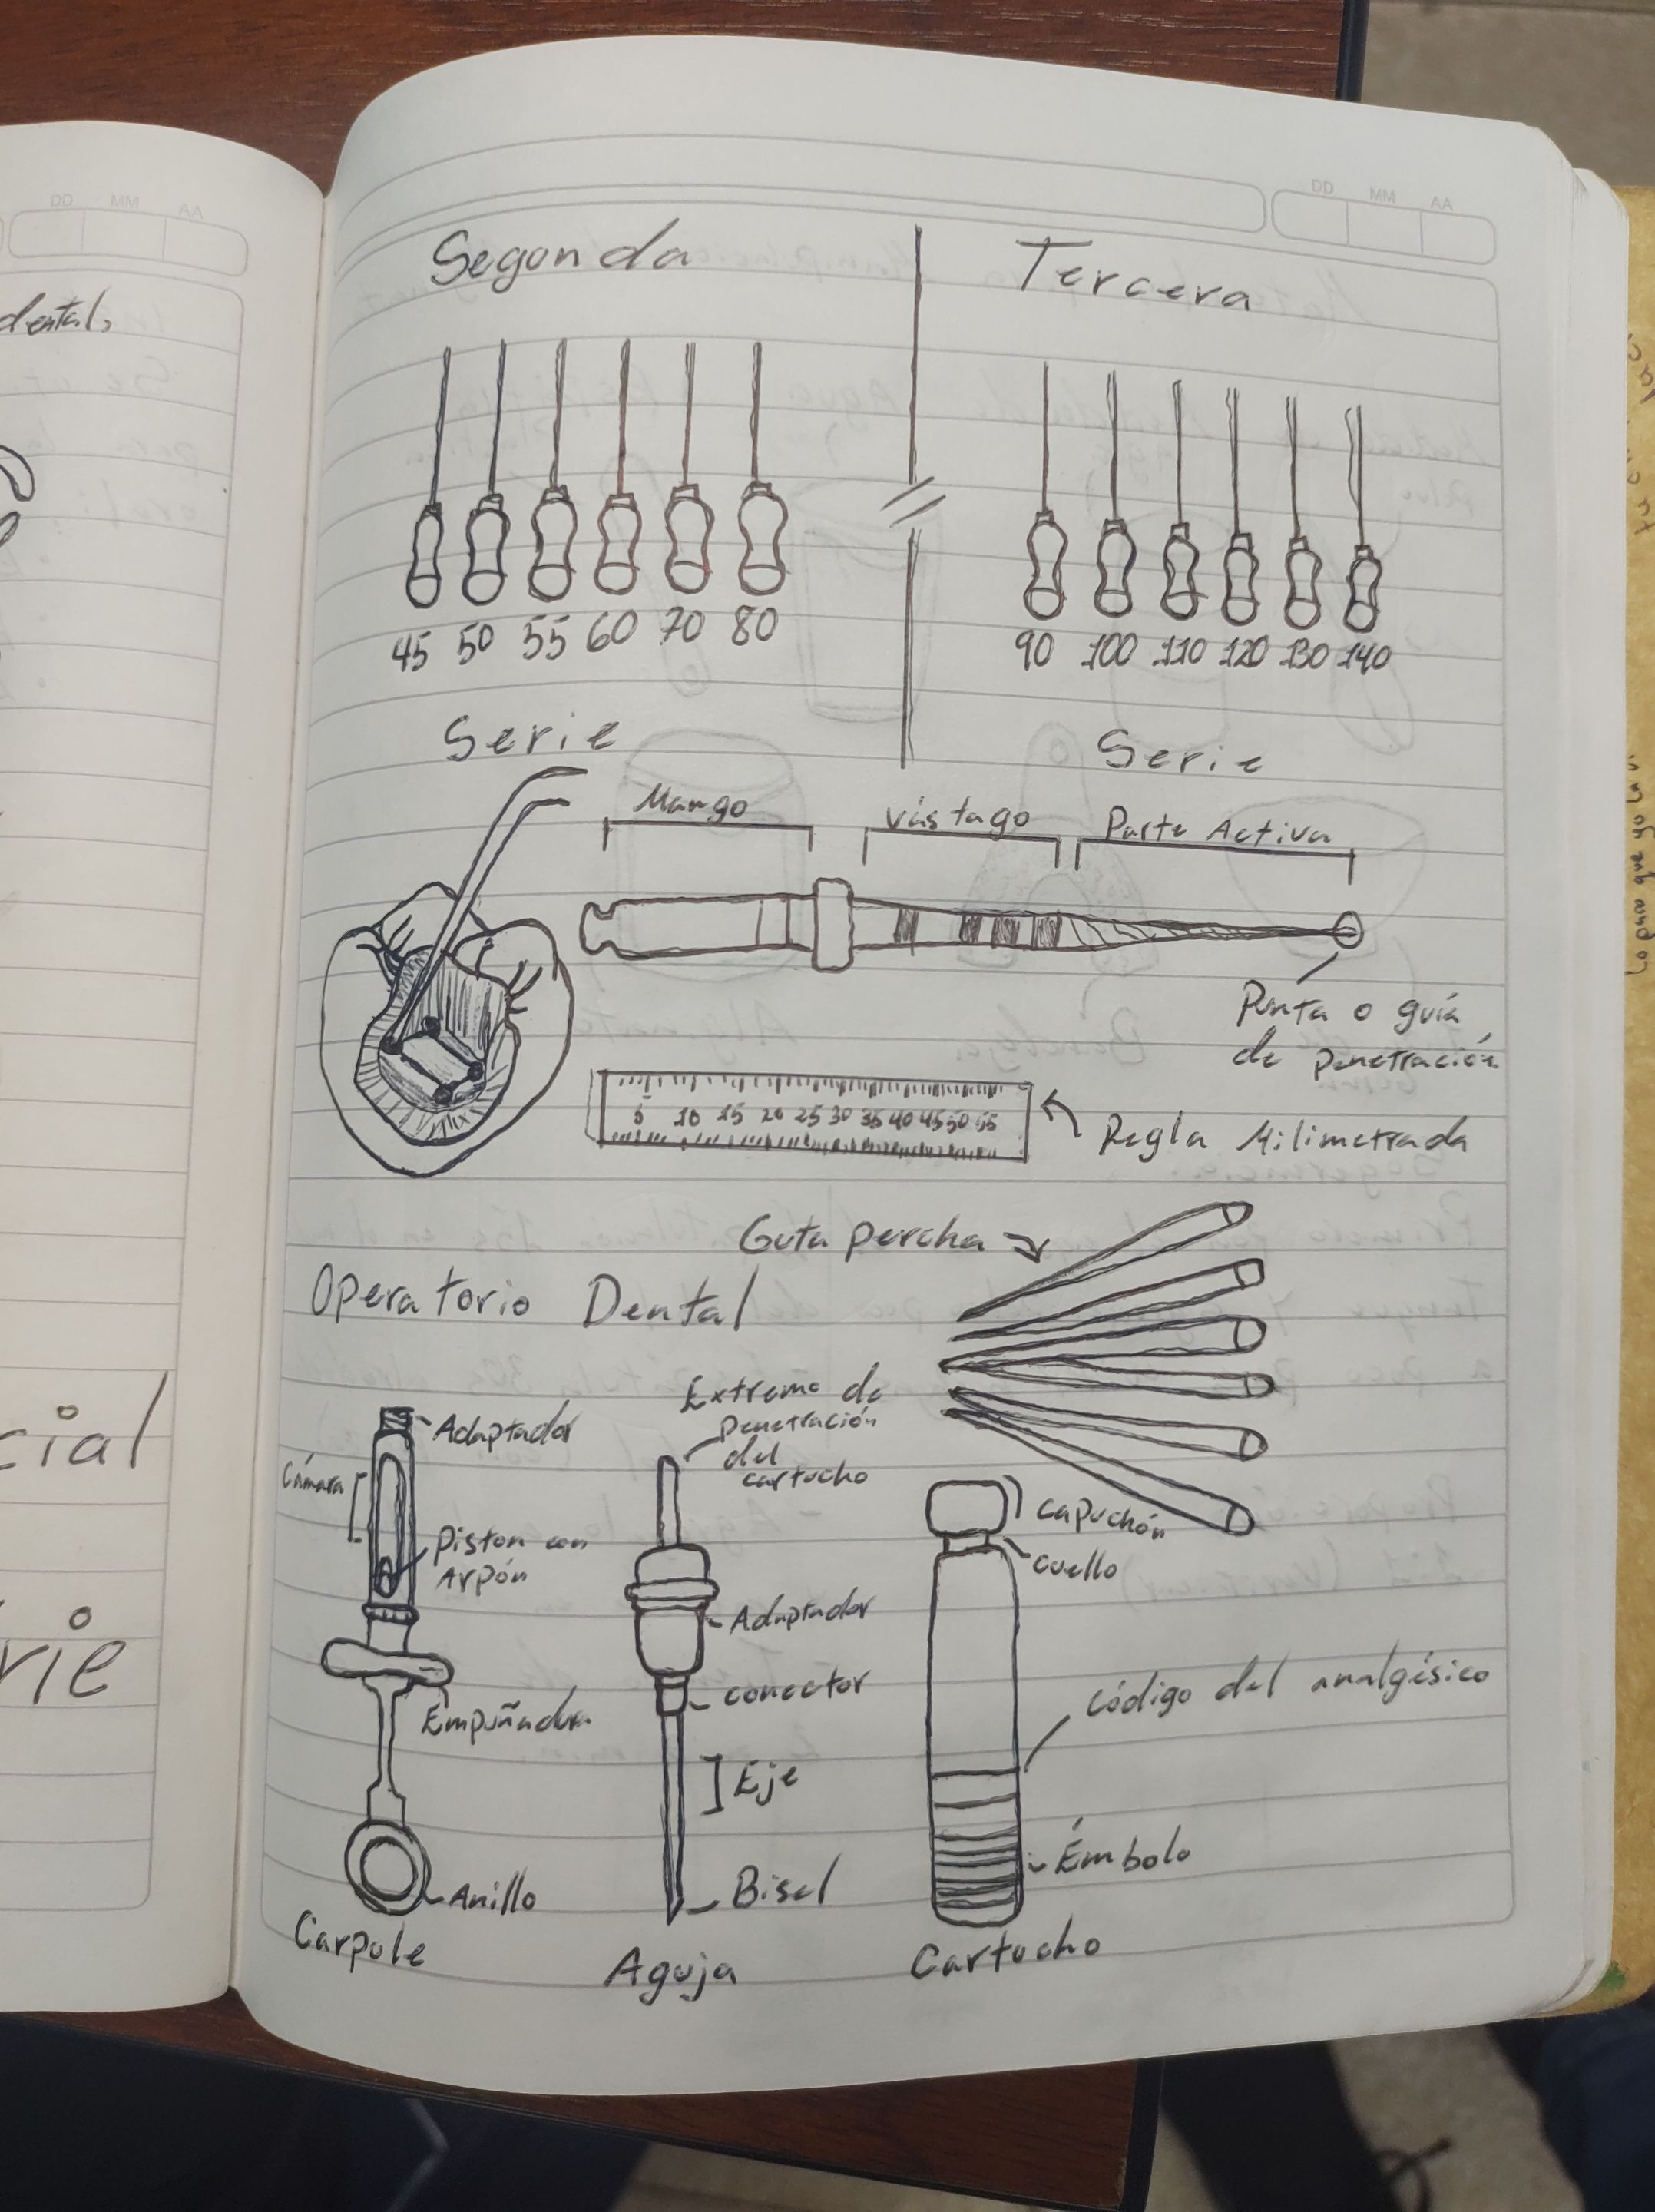 DD MM AA
DD MM AA
dental,
cial
rie
Segonda
Tercera
45 50 55 60 70 80
90 100 110 120 130 140
Serie
Serie
Mango
vástago
Parte Activa
Punta o guía
de penetración
5 10 15 20 25 30 35 40 45 50 55
Regla Milimetrada
Guta percha
Operatorio Dental
Extremo de
penetración
del
cartucho
Adaptador
Cámara
Piston con
Arpón
Empuñadura
Anillo
Carpule
Adaptador
conector
Eje
Bisel
Aguja
capuchón
cuello
código del analgésico
Émbolo
Cartucho